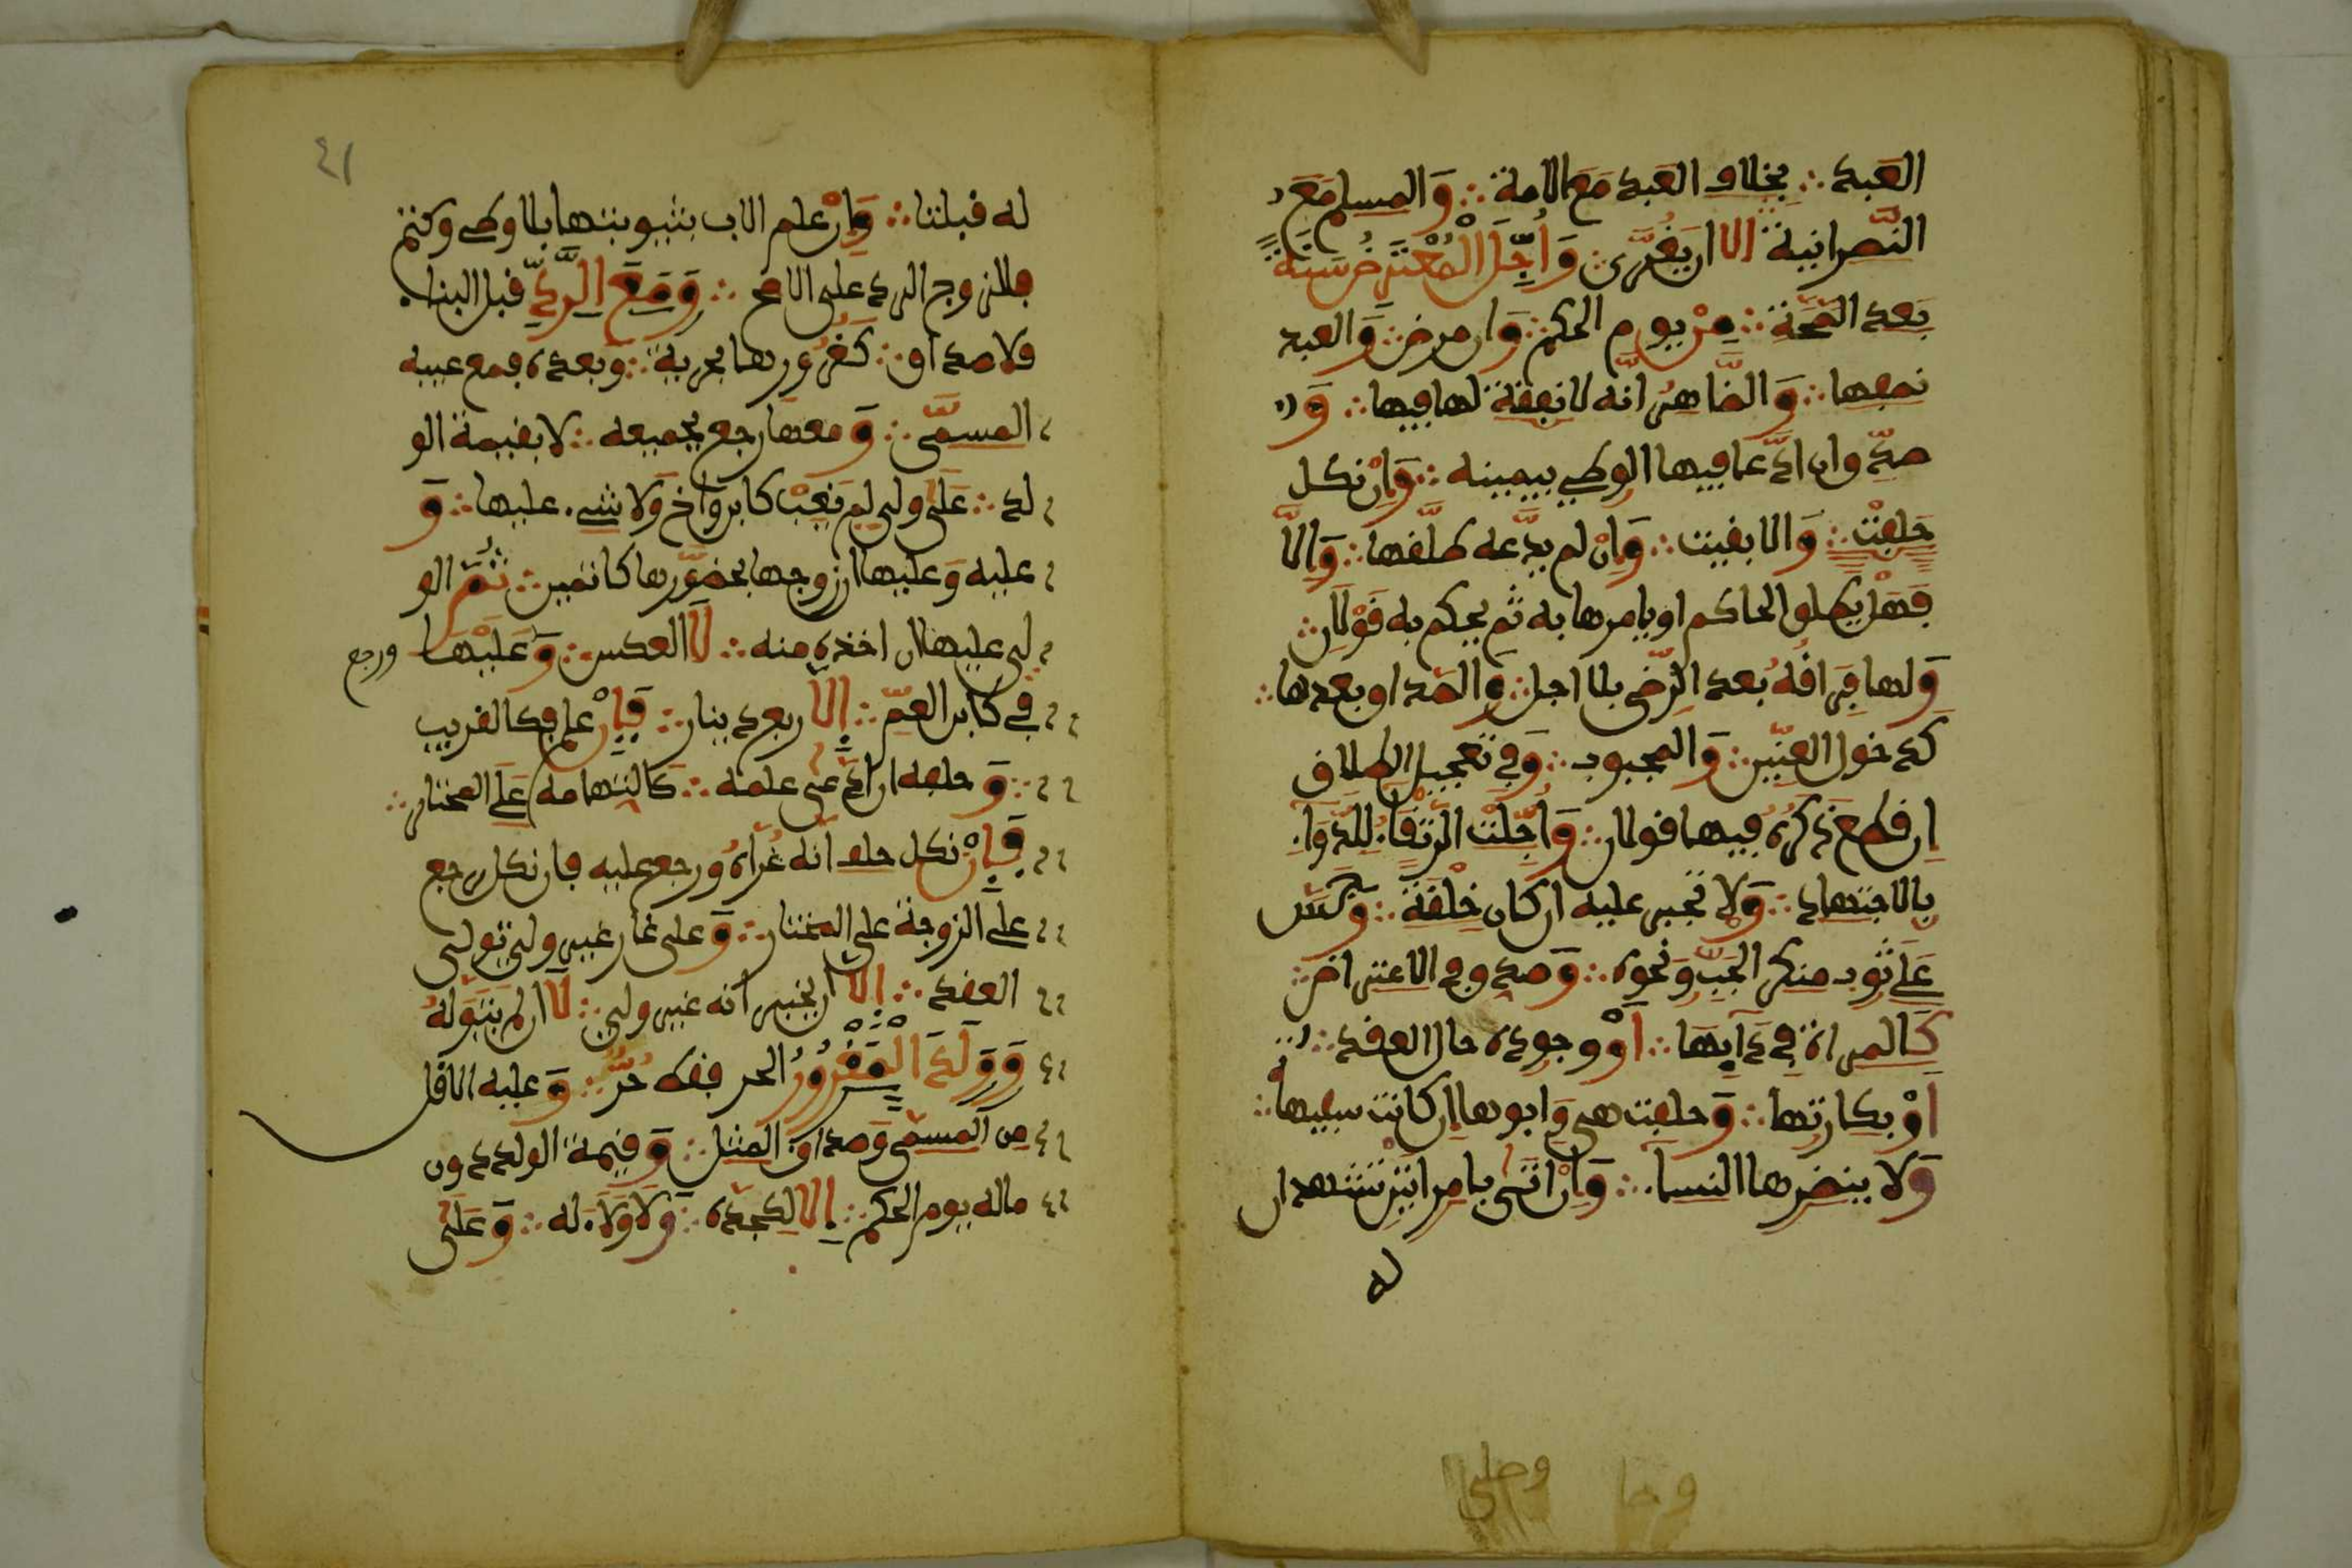 العبد ∴ بخلاف العبد مع الامة ∴ وَالمسلم مَعَ
النّصرانية الا ان يغُرَّى ∴ وَأُجِّلَ الْمُعْتَرَضُ سَنَةً
بَعد الصّحّة ∴ مِنْ يوم الحكم ∴ وَان مرض ∴ وَالعبد
نصفها ∴ وَالظّاهر انّه لا نفقة لها فيها ∴ وَ
صدّق ان ادّعا فيها الوطء بيمينه ∴ وَإن نكل
حَلفت ∴ وَالا بقيت ∴ وَإن لم يدّعه طلّقها ∴ وَإلّا
فَهَل يطلق الحاكم او يامرها به ثم يحكم به قَوْلَان ∴
وَلها فِرَاقُهُ بعد الرّضى بلا اجل ∴ وَالصّداق بعدها ∴
كدخول العنّين ∴ وَالمجبوب ∴ وَفي تعجيل الطلاق
إن قطع ذكرُهُ فيها قولان ∴ وَأُجِّلت الرّتقاءُ لِلدَّوَاءِ
بالاجتهاد ∴ وَلا تجبر عليه ان كان خِلْقَةً ∴ وَجُسَّ
عَلَى ثوب منكر الجَبِّ وَنحوه ∴ وَصدق في الاعتراض ∴
كَالمراة في دَآئِهَا ∴ أوْ وجوده حال العقد ∴
اوْ بكارتها ∴ وَحلفت هي وَابوها ان كانت سفيها ∴
وَلا ينضرها النساء ∴ وَإن اتى بامراتين تشهدان
له
وحا وحلى
٤١
له قبلتا ∴ وَإن علم الاب بثيوبتها بلا وطء وكتم
فللزوج الرد على الاصح ∴ وَمَعَ الرَّدِّ قبل البناء
فلا صداق ∴ كَغُرُورها بحرية ∴ وَبعده فمع عيبه
المسمّى ∴ وَمعها رجع بجميعه ∴ لا بقيمة الو
لد ∴ عَلى ولي لم يَغِبْ كابن وَاخ وَلا شيء عليها ∴ وَ
عليه وَعليها ان زوجها بحضورها كاتمين ∴ ثُمَّ الو
لي عليها ان اخذه منه ∴ لَا العكس ∴ وَعَلَيْهَا ورجع
في كابن العمّ ∴ إلا ربع دينار ∴ فَإِنْ علم فكالقريب
∴ وَحلفه ان ادّعى علمه ∴ كَاتهامه عَلَى المختار ∴
فَإِنْ نكل حلف انّه غَرّه وَرجع عليه فان نكل رجع
على الزوجة على المختار ∴ وَعلى غار غير ولي تولى
العقد ∴ إلا ان يخبر انه غير ولي ∴ لَا ان لم يتولهُ
وَوَلَدُ الْمَغْرُورِ الحر فقط حُرٌّ ∴ وَعليه الاقل
من المسمّى وَصداق المثل ∴ وَقيمة الولد دون
ماله يوم الحكم ∴ إلا لكجده ∴ وَلا وَلَاءَ له ∴ وَعَلَى